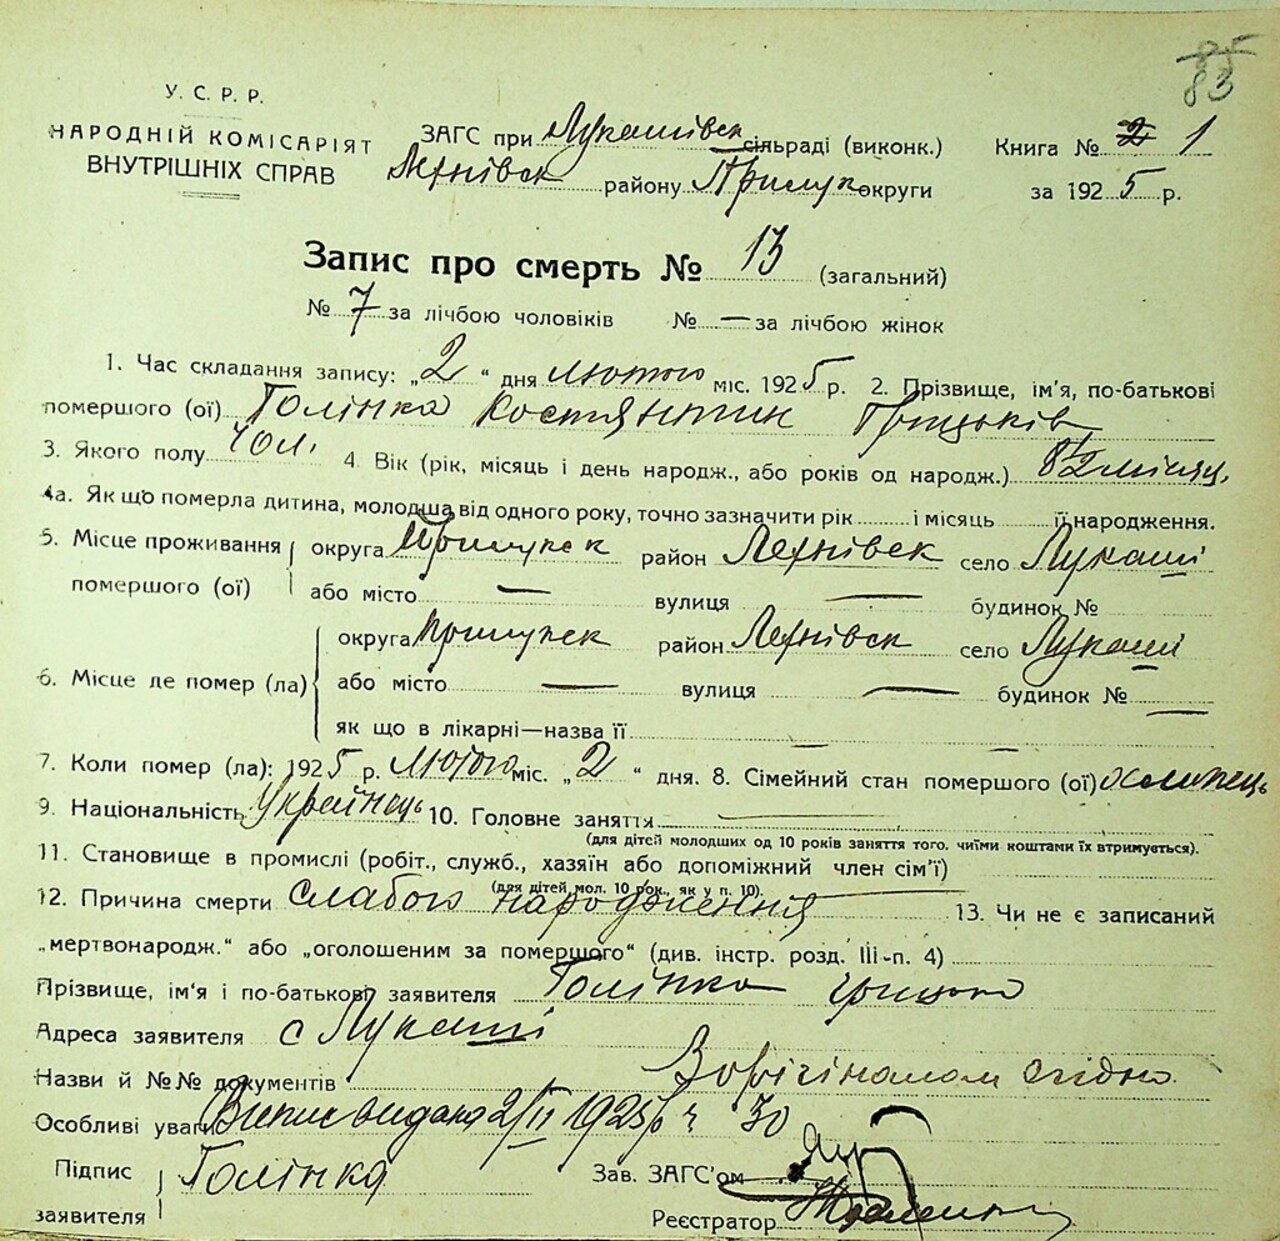 85
83
У. С. Р. Р.
НАРОДНІЙ КОМІСАРІЯТ
ВНУТРІШНІХ СПРАВ
ЗАГС при Лукашівск сільраді (виконк.)
району Прилук округи
Книга № 2 1
за 1925 р.
Запис про смерть № 13 (загальний)
№ 7 за лічбою чоловіків № — за лічбою жінок
1. Час складання запису: „2“ дня лютого міс. 1925 р. 2. Прізвище, ім'я, по-батькові
помершого (ої) Голінка Костянтин Грицьків
3. Якого полу чол. 4. Вік (рік, місяць і день народж., або років од народж.) 8½ місяц.
4а. Як що померла дитина, молодша від одного року, точно зазначити рік і місяць її народження.
5. Місце проживання помершого (ої) округа Прилупск район село Лукаші
або місто — вулиця — будинок №
6. Місце де помер (ла) округа Прилупск район село Лукаші
або місто — вулиця — будинок № —
як що в лікарні—назва її — —
7. Коли помер (ла): 1925 р. Лютого міс. „2“ дня. 8. Сімейний стан помершого (ої)
9. Національність Українець 10. Головне заняття —
(для дітей молодших од 10 років заняття того, чиїми коштами їх втримується).
11. Становище в промислі (робіт., служб., хазяїн або допоміжний член сім'ї)
(для дітей мол. 10 рок., як у п. 10). —
12. Причина смерти слабого народження 13. Чи не є записаний
„мертвонародж.“ або „оголошеним за помершого“ (див. інстр. розд. III-п. 4)
Прізвище, ім'я і по-батькові заявителя Голінка Грицько
Адреса заявителя с Лукаші
Назви й №№ документів З орігіналом згідно
Особливі уваги Випис видано 2/II 1925 р ч 30
Підпис заявителя Голінка
Зав. ЗАГС'ом
Реєстратор